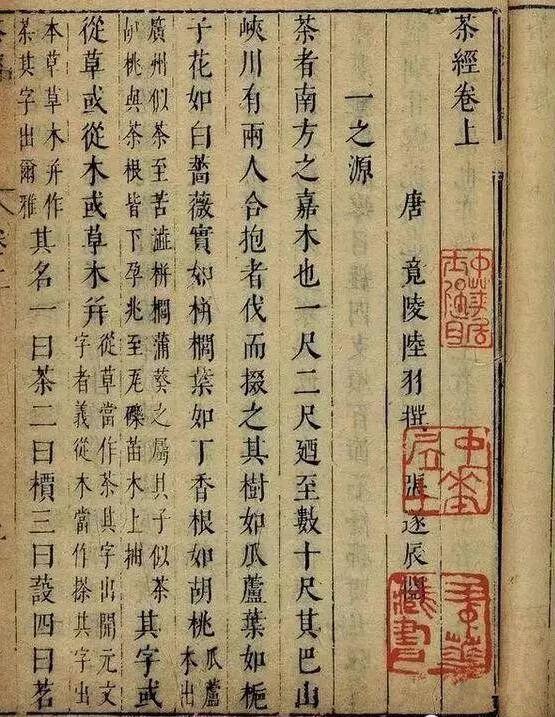 茶經卷上
唐 竟陵陸羽撰 張遂辰閱
一之源
茶者南方之嘉木也一尺二尺廼至數十尺其巴山
峽川有兩人合抱者伐而掇之其樹如瓜蘆葉如梔
子花如白薔薇實如栟櫚葉如丁香根如胡桃瓜蘆本出
廣州似茶至苦澁栟櫚蒲葵之屬其子似茶胡桃與茶根皆下孕兆至瓦礫苗木上抽其字或
從草或從木或草木并從草當作茶其字出開元文字者義從木當作搽其字出
本草草木并作茶其字出爾雅其名一曰茶二曰檟三曰蔎四曰茗